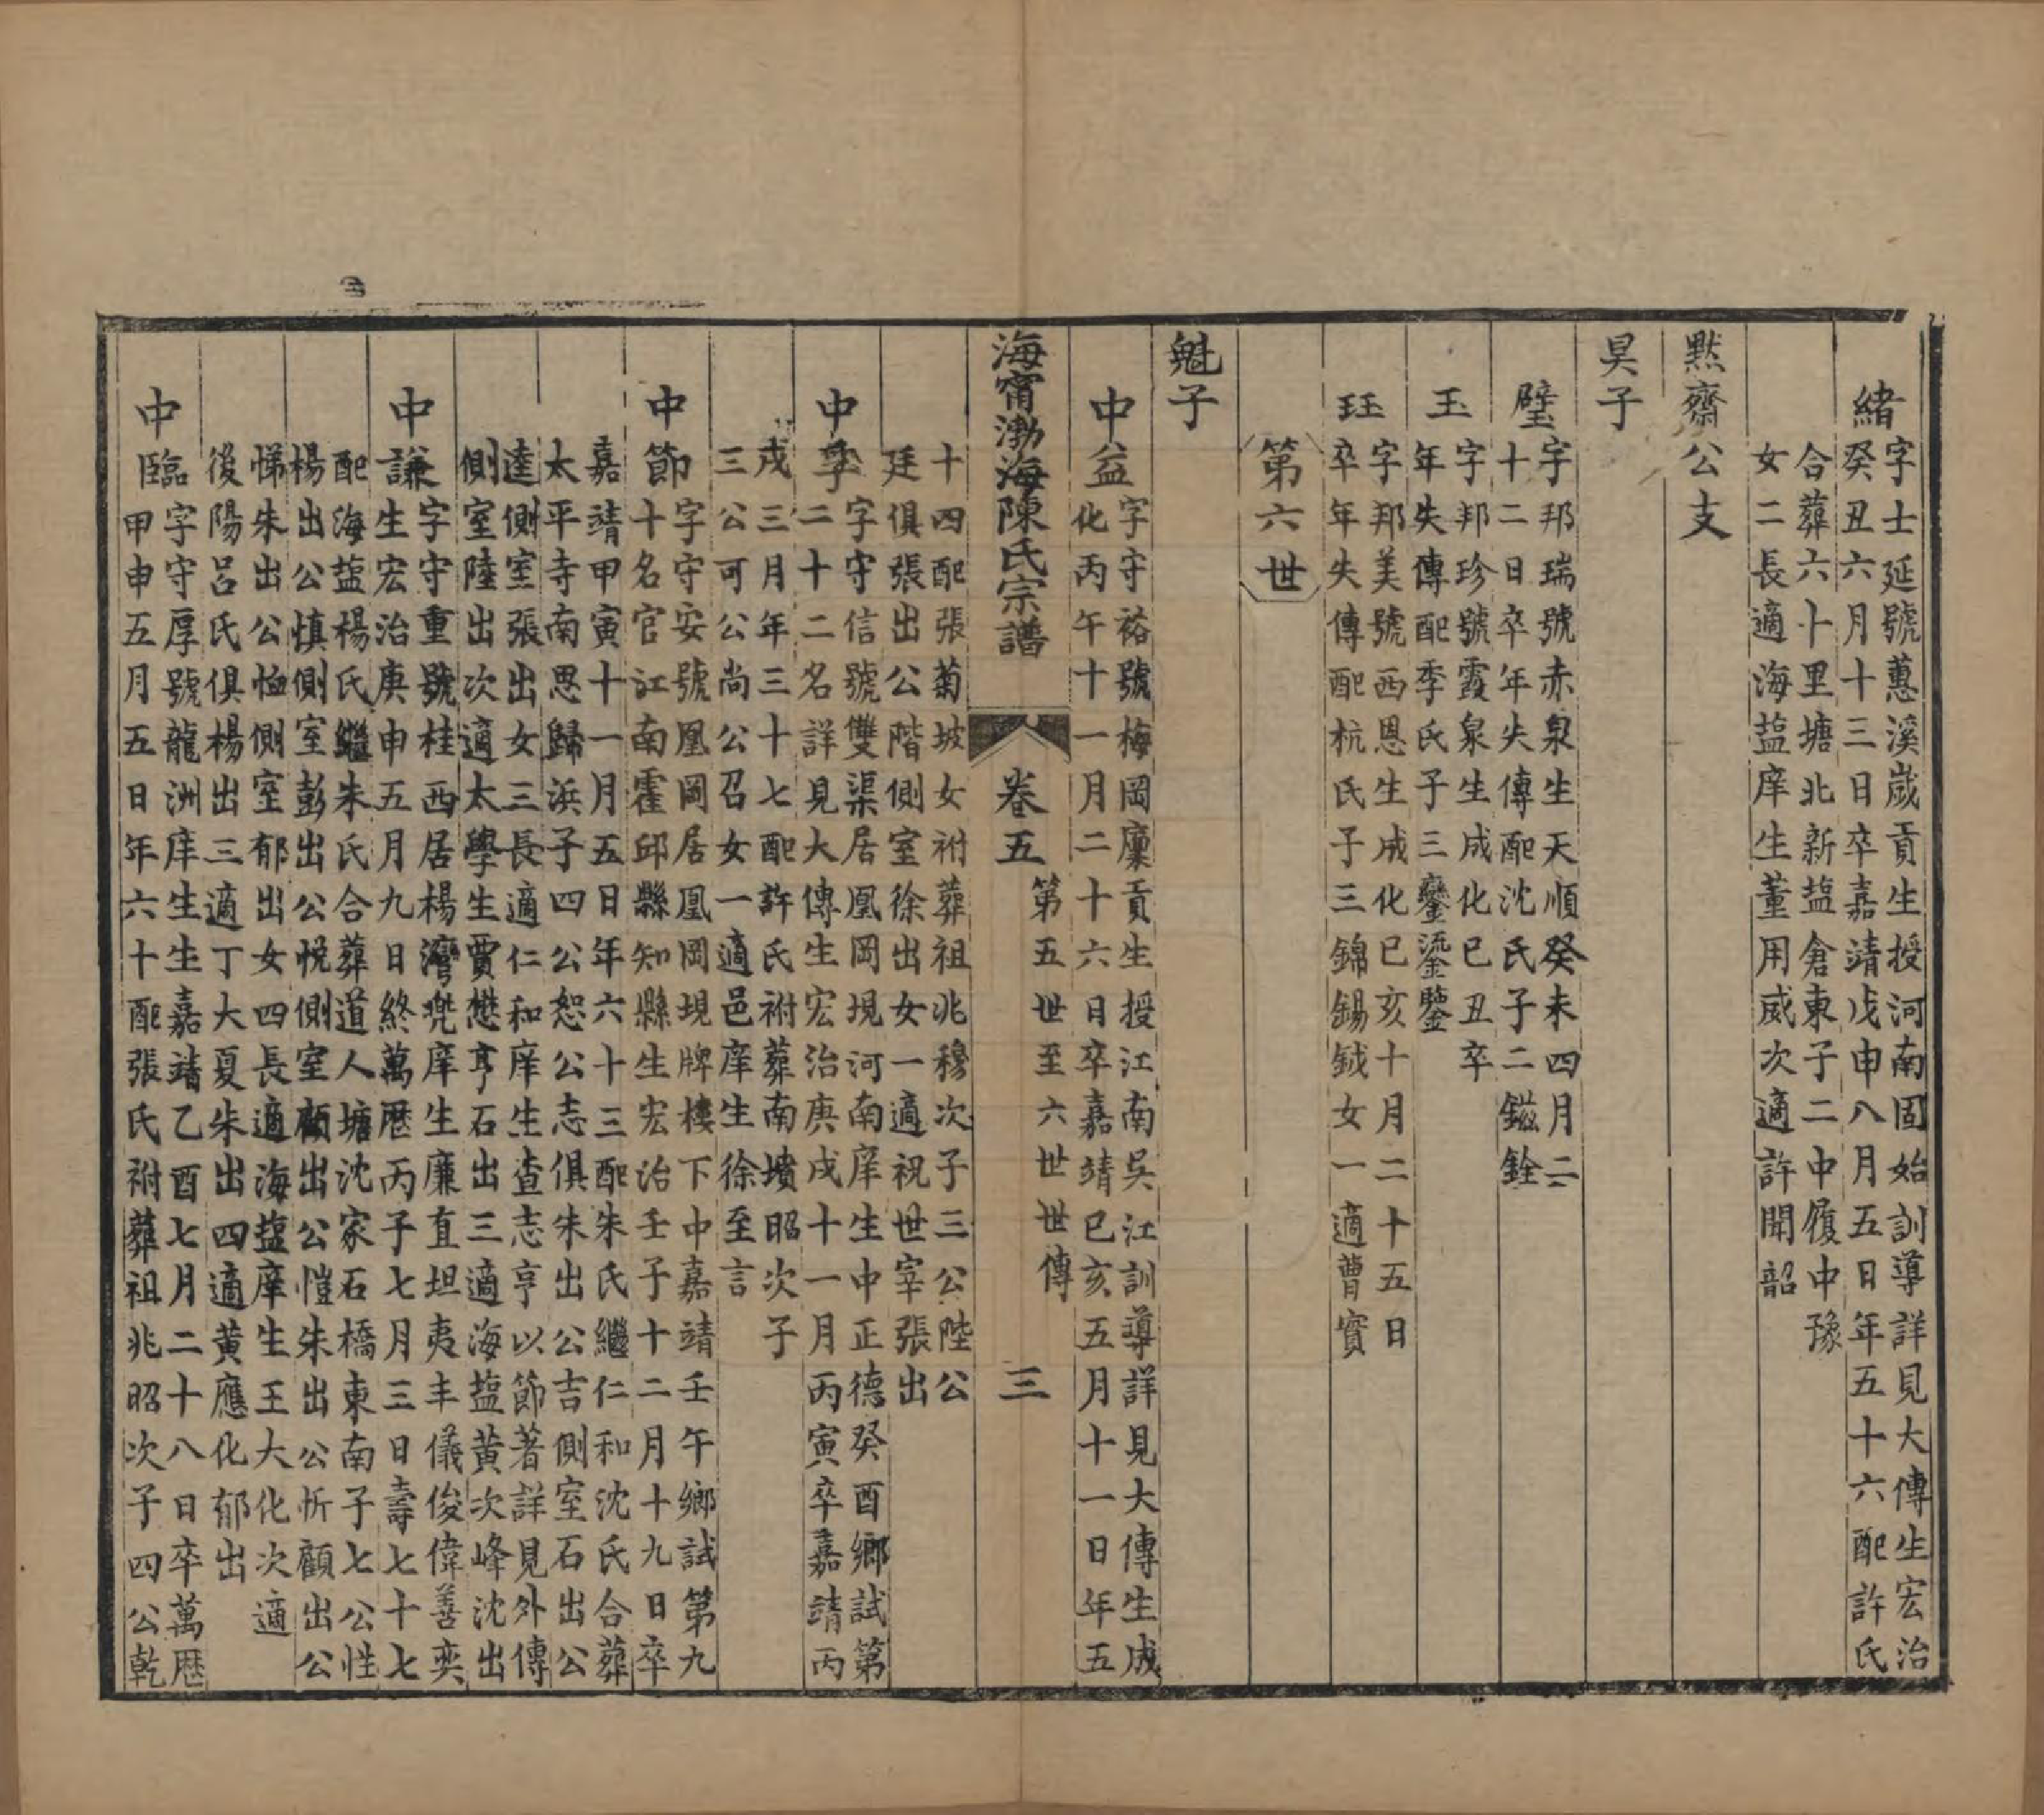 緒
字士延號蕙溪歲貢生授河南固始訓導詳見大傳生宏治
癸丑六月十三日卒嘉靖戊申八月五日年五十六配許氏
合葬六十里塘北新盐倉東子二中履中豫
女二長適海盐庠生董用威次適許聞韶
㸃齋公支
昊子
璧
字邦瑞號赤泉生天順癸未四月二
十二日卒年失傳配沈氏子二鎡銓
玉
字邦珍號霞泉生成化己丑卒
年失傳配季氏子三鑾鎏鑒
玨
字邦美號西恩生成化己亥十月二十五日
卒年失傳配杭氏子三錦錫鉞女一適曹寶
第六世
魁子
中益
字守裕號梅岡廩貢生授江南吳江訓導詳見大傳生成
化丙午十一月二十六日卒嘉靖己亥五月十一日年五
海甯渤海陳氏宗譜
卷五
第五世至六世世傳
三
十四配張菊坡女祔葬祖兆穆次子三公陛公
廷俱張出公階側室徐出女一適祝世宰張出
中孚
字守信號雙渠居凰岡現河南庠生中正德癸酉鄉試第
二十二名詳見大傳生宏治庚戌十一月丙寅卒嘉靖丙
戌三月年三十七配許氏祔葬南墳昭次子
三公可公尚公召女一適邑庠生徐至言
中節
字守安號凰岡居凰岡現牌樓下中嘉靖壬午鄉試第九
十名官江南霍邱縣知縣生宏治壬子十二月十九日卒
嘉靖甲寅十一月五日年六十三配朱氏繼仁和沈氏合葬
太平寺南思歸浜子四公恕公志俱朱出公吉側室石出公
逵側室張出女三長適仁和庠生查志亨以節著詳見外傳
側室陸出次適太學生賈懋亨石出三適海盐黄次峰沈出
中謙
字守重號桂西居楊灣兠庠生廉直坦夷丰儀俊偉善奕
生宏治庚申五月九日終萬歷丙子七月三日壽七十七
配海盐楊氏繼朱氏合葬道人塘沈家石橋東南子七公性
楊出公慎側室彭出公悅側室顧出公愷朱出公忻顧出公
悌朱出公恤側室郁出女四長適海盐庠生王大化次適
後陽呂氏俱楊出三適丁大夏朱出四適黄應化郁出
中臨
字守厚號龍洲庠生生嘉靖乙酉七月二十八日卒萬歷
甲申五月五日年六十配張氏祔葬祖兆昭次子四公乾